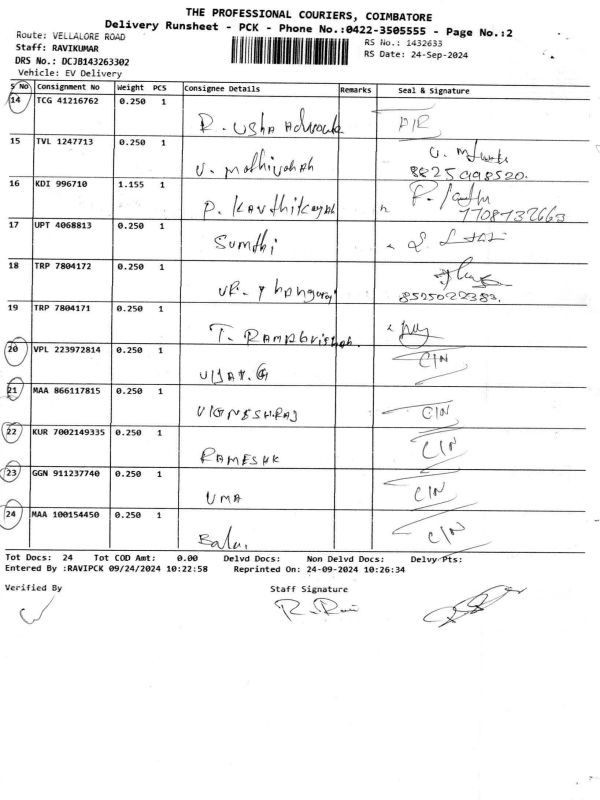 THE PROFESSIONAL COURIERS, COIMBATORE
Delivery Runsheet - PCK - Phone No.:0422-3505555 - Page No.:2
Route: VELLALORE ROAD
RS No.: 1432633
Staff: RAVIKUMAR
RS Date: 24-Sep-2024
DRS No.: DCJB143263302
Vehicle: EV Delivery
S No Consignment No Weight PCS Consignee Details Remarks Seal & Signature
14 TCG 41216762 0.250 1
R. Usha Advocate
15 TVL 1247713 0.250 1
V. Mathivanan
8825998520.
16 KDI 996710 1.155 1
P. Karthikayan
7708732663
17 UPT 4068813 0.250 1
Sumthi
18 TRP 7804172 0.250 1
8525022383.
19 TRP 7804171 0.250 1
T. Ramakrishnan.
20 VPL 223972814 0.250 1 C/N
VIJAY. G
21 MAA 866117815 0.250 1
VIGNESHRAJ C/N
22 KUR 7002149335 0.250 1
RAMESH K C/N
23 GGN 911237740 0.250 1
UMA C/N
24 MAA 100154450 0.250 1
Balu. C/N
Tot Docs: 24 Tot COD Amt: 0.00 Delvd Docs: Non Delvd Docs: Delvy Pts:
Entered By :RAVIPCK 09/24/2024 10:22:58 Reprinted On: 24-09-2024 10:26:34
Verified By Staff Signature
R. Ravi